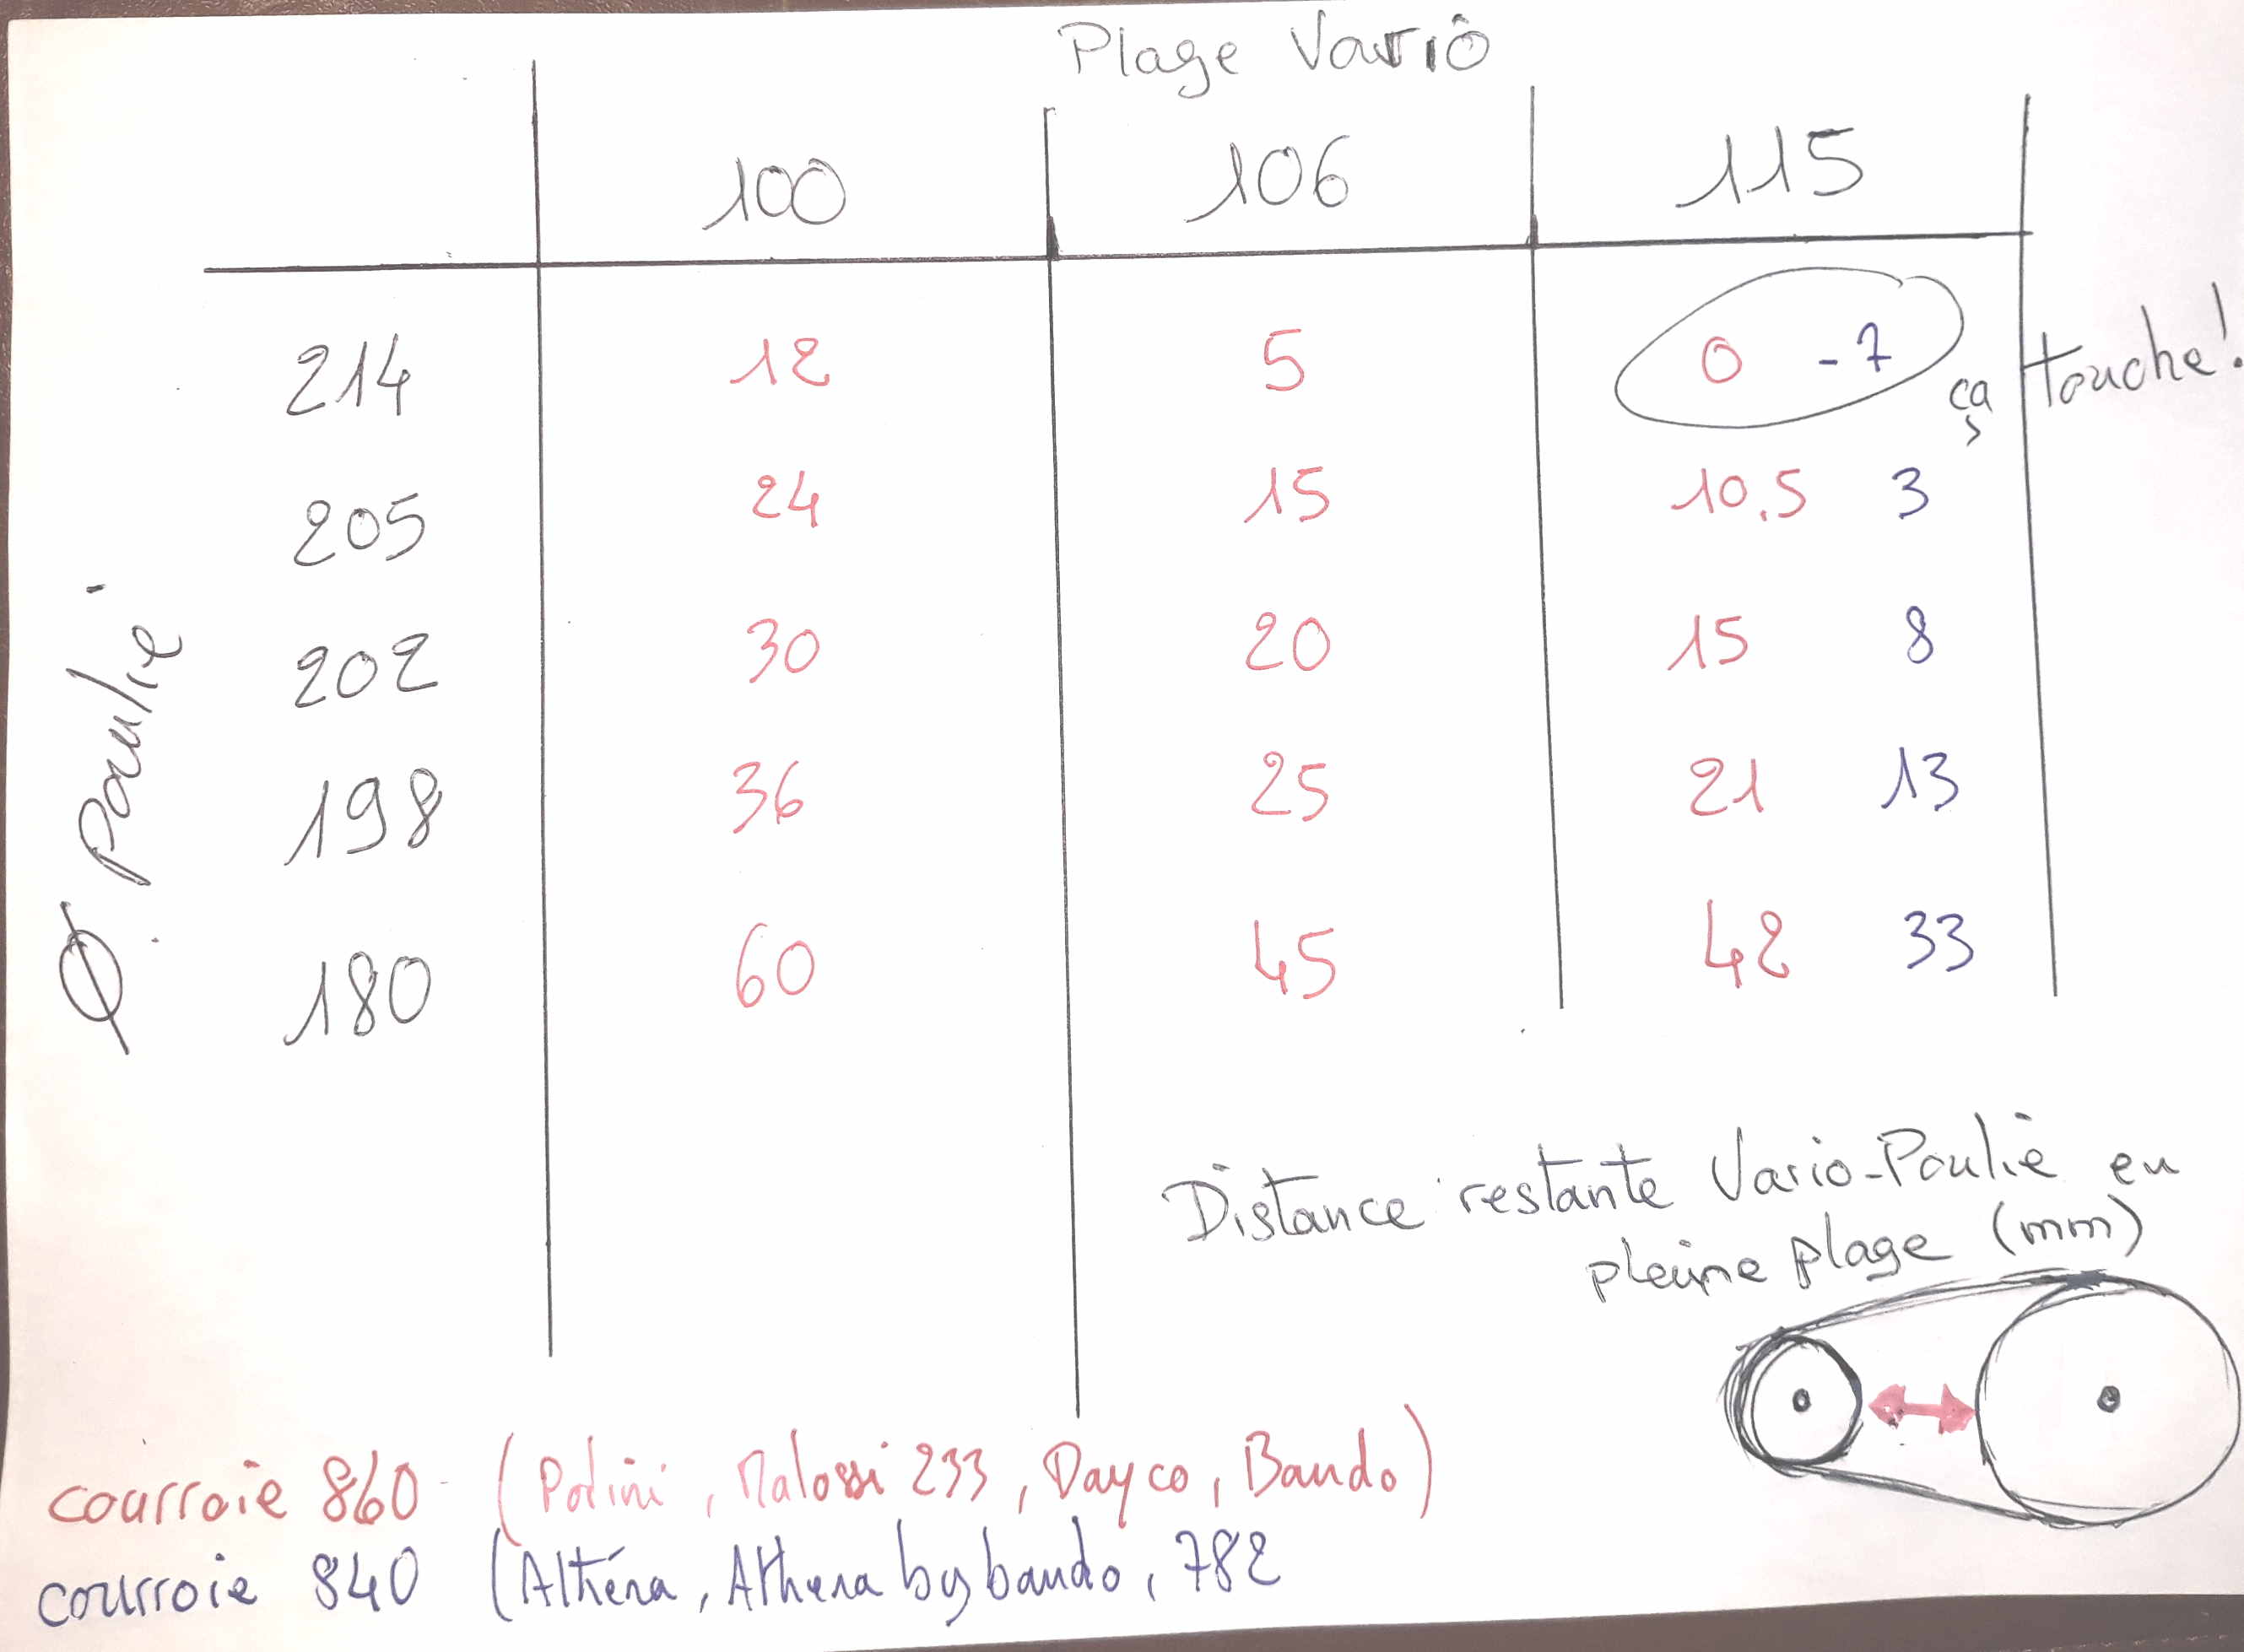 Plage Vario
100 106 115
214 12 5 0 -7 ça touche!
205 24 15 10,5 3
202 30 20 15 8
198 36 25 21 13
180 60 45 42 33
Ø poulie
Distance restante Vario-Poulie en
pleine plage (mm)
courroie 860 (Polini, Malossi 233, Dayco, Bando)
courroie 840 (Athéna, Athena by bando, 782